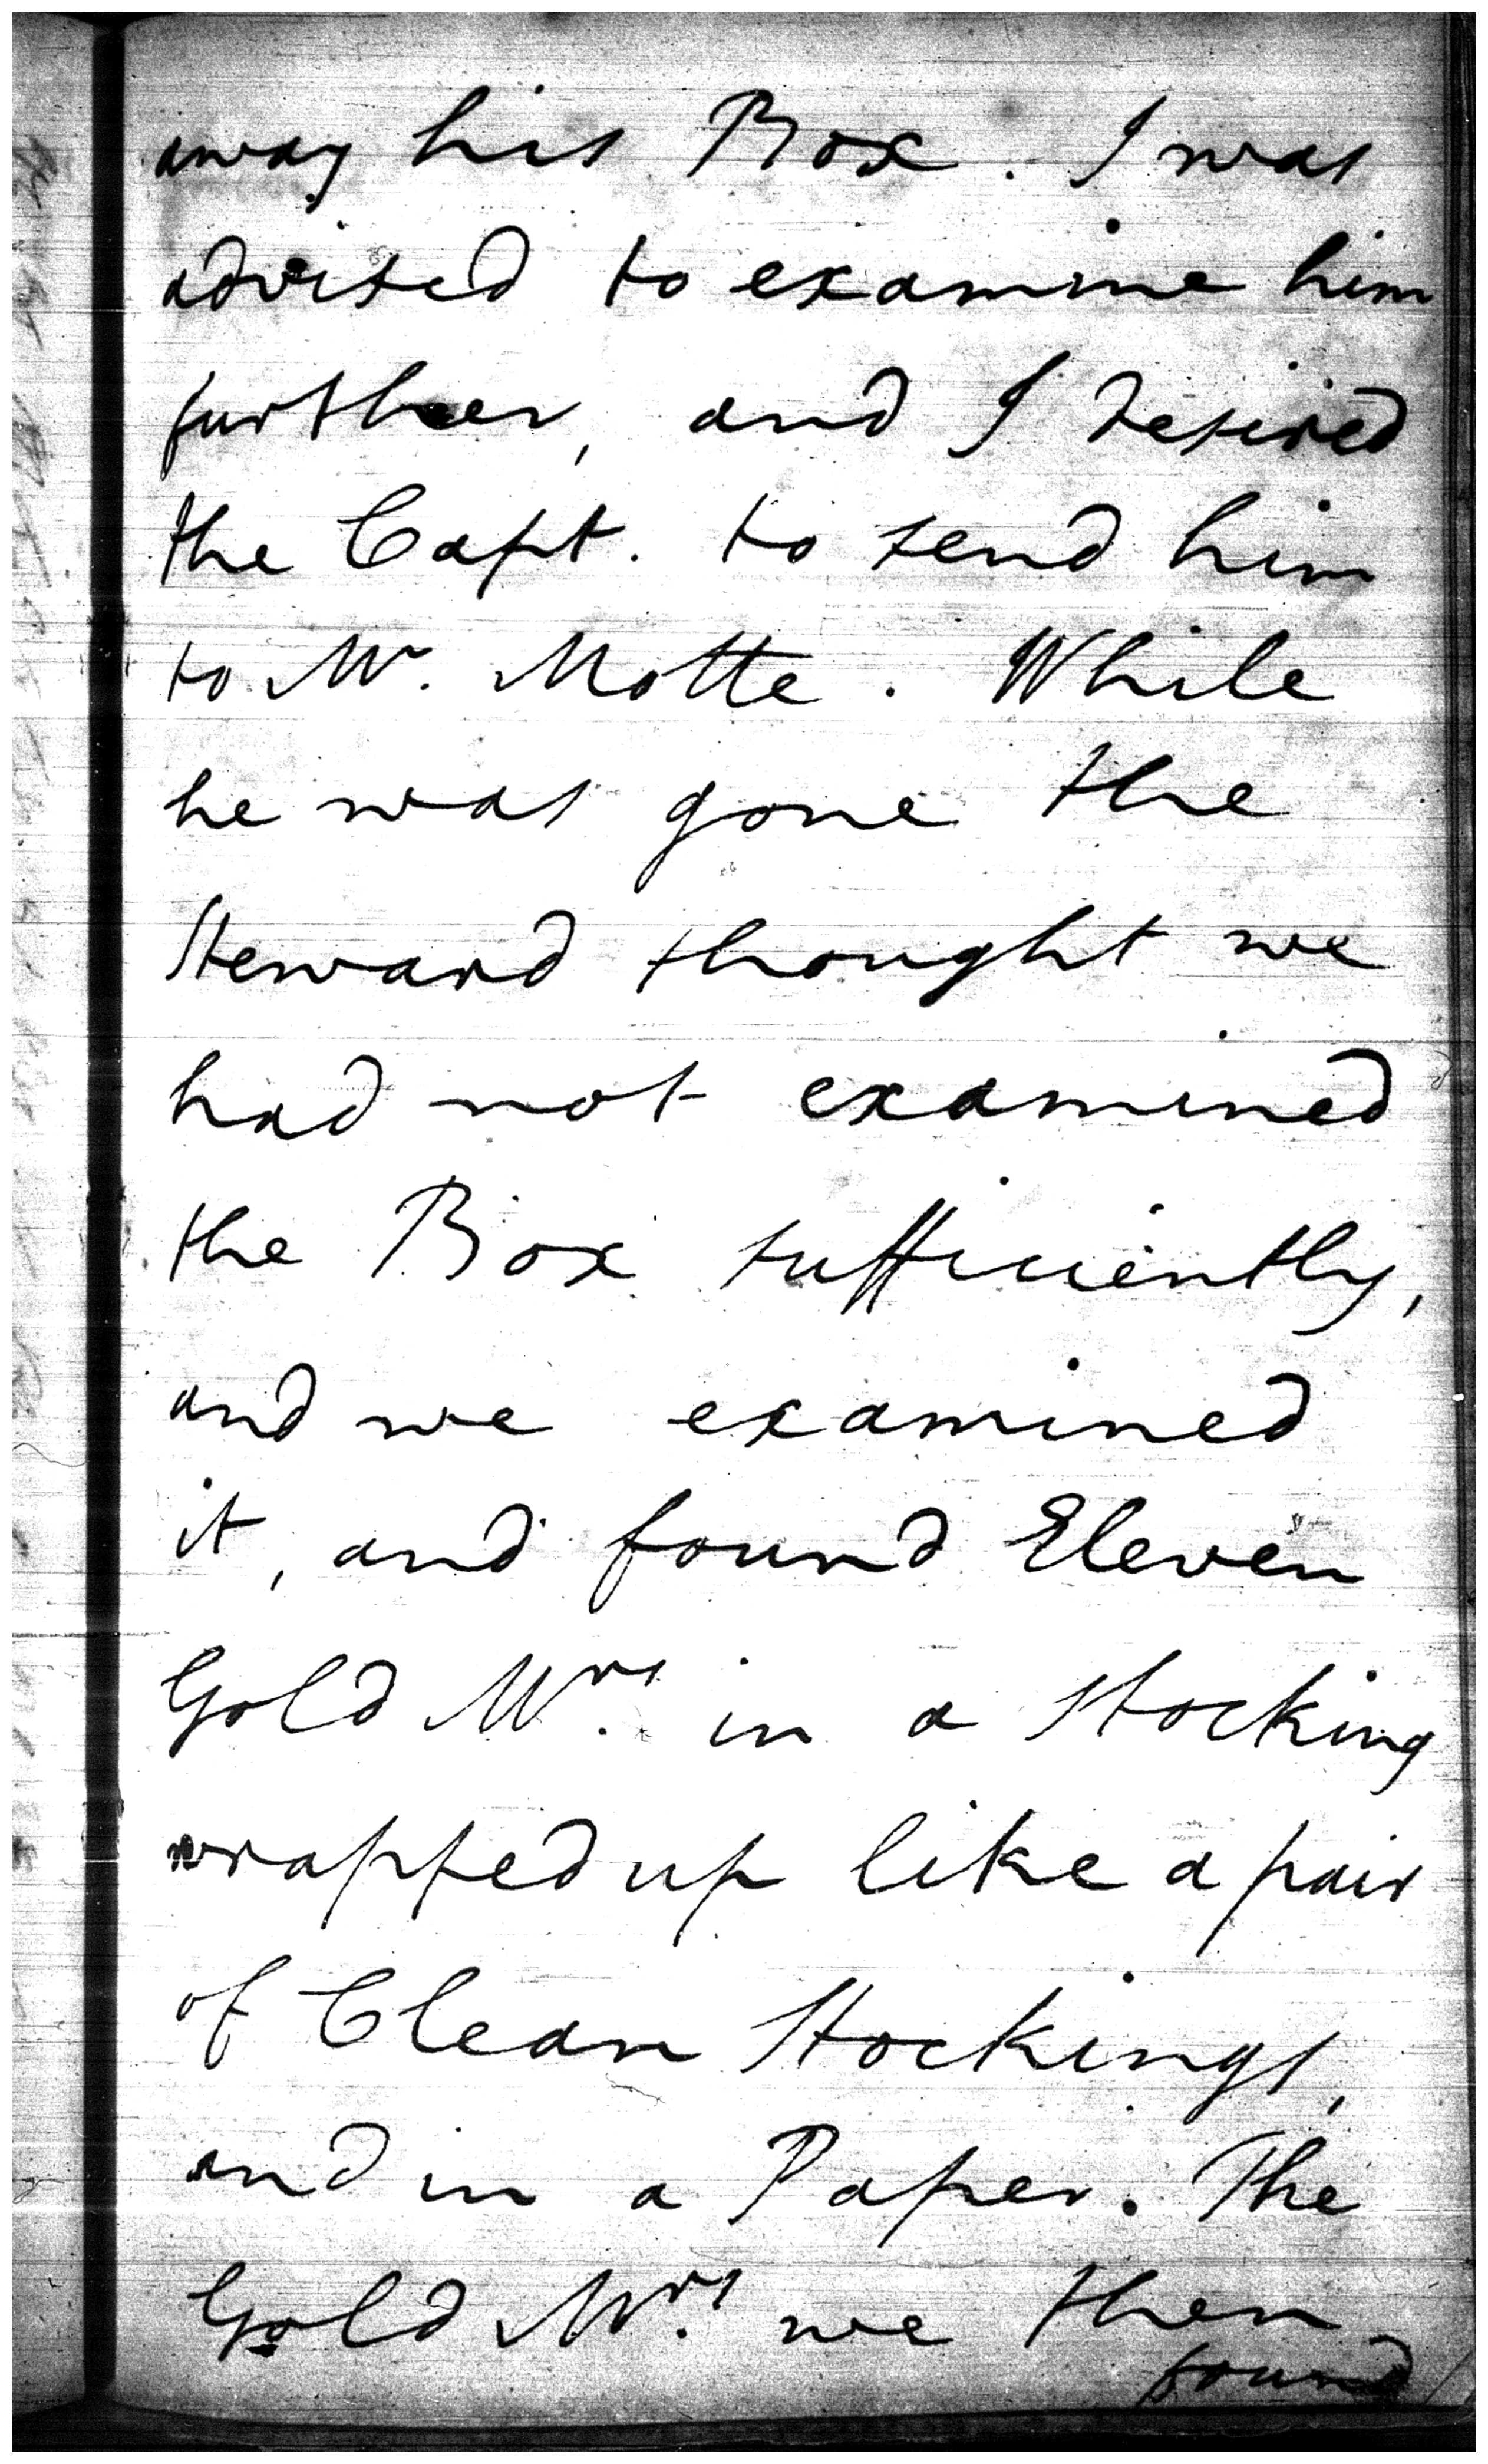 away his Box. I was
advised to examine him
further, and I desired
the Capt. to send him
to Mr. Motte. While
he was gone the
Steward thought we
had not examined
the Box sufficiently,
and we examined
it, and found Eleven
Gold Mrs. in a Stocking
wrapped up like a pair
of Clean Stockings,
and in a Paper. The
Gold Mrs. we then
found